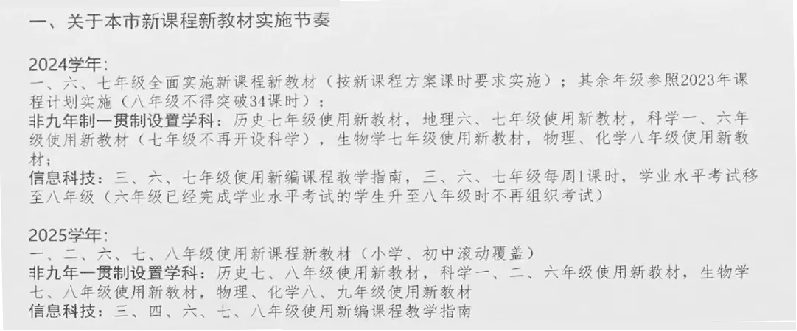 一、关于本市新课程新教材实施节奏
2024学年：
一、六、七年级全面实施新课程新教材（按新课程方案课时要求实施）；其余年级参照2023年课
程计划实施（八年级不得突破34课时）；
非九年制一贯制设置学科：历史七年级使用新教材，地理六、七年级使用新教材，科学一、六年
级使用新教材（七年级不再开设科学），生物学七年级使用新教材，物理、化学八年级使用新教
材；
信息科技：三、六、七年级使用新编课程教学指南，三、六、七年级每周1课时，学业水平考试移
至八年级（六年级已经完成学业水平考试的学生升至八年级时不再组织考试）
2025学年：
一、二、六、七、八年级使用新课程新教材（小学、初中滚动覆盖）
非九年一贯制设置学科：历史七、八年级使用新教材，科学一、二、六年级使用新教材，生物学
七、八年级使用新教材，物理、化学八、九年级使用新教材
信息科技：三、四、六、七、八年级使用新编课程教学指南